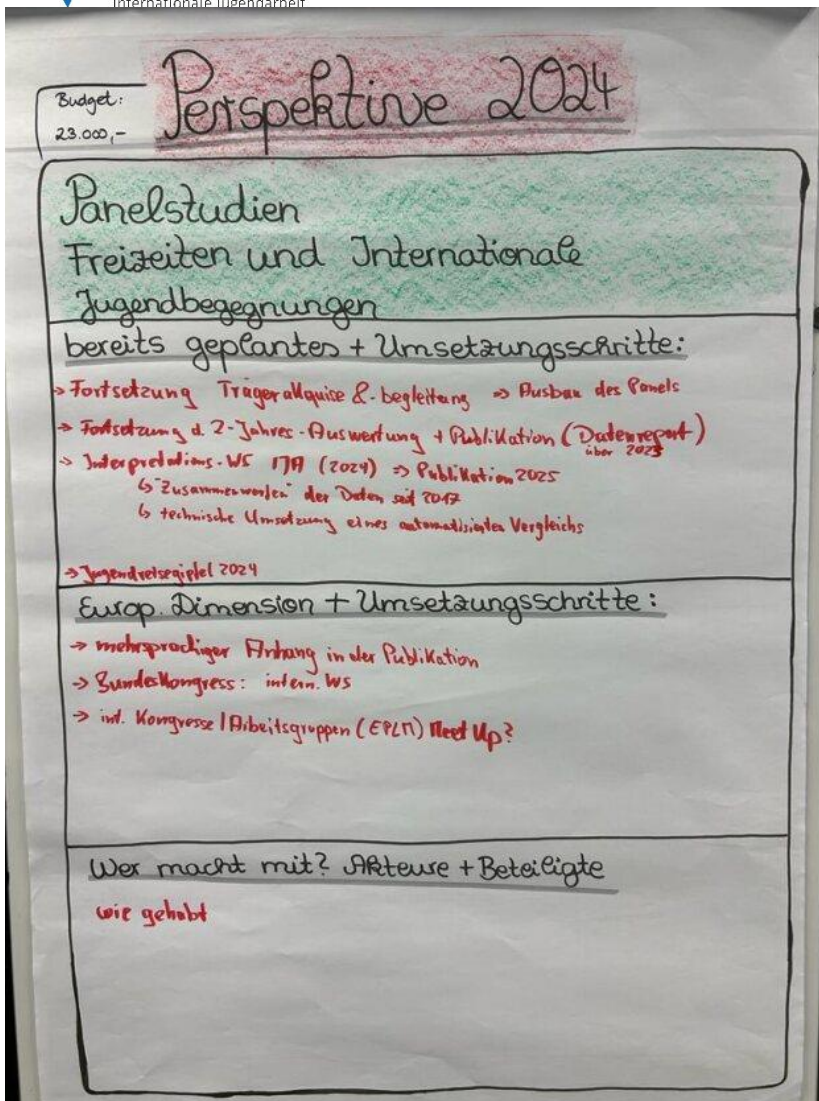 Internationale Jugendarbeit
Budget:
23.000,-
Perspektive 2024
Panelstudien
Freizeiten und Internationale
Jugendbegegnungen
bereits geplantes + Umsetzungsschritte:
→ Fortsetzung Trägerakquise & -begleitung ⇒ Ausbau des Panels
→ Fortsetzung d. 2-Jahres-Auswertung + Publikation (Datenreport)
über 2023
→ Interpretations-WS (2024) ⇒ Publikation 2025
↳ "Zusammenwerfen" der Daten seit 2017
↳ technische Umsetzung eines automatisierten Vergleichs
→ Jugendreisegipfel 2024
Europ. Dimension + Umsetzungsschritte:
→ mehrsprachiger Anhang in der Publikation
→ Bundeskongress: intern. WS
→ int. Kongresse / Arbeitsgruppen (EPLM) Meet Up?
Wer macht mit? Akteure + Beteiligte
wie gehabt